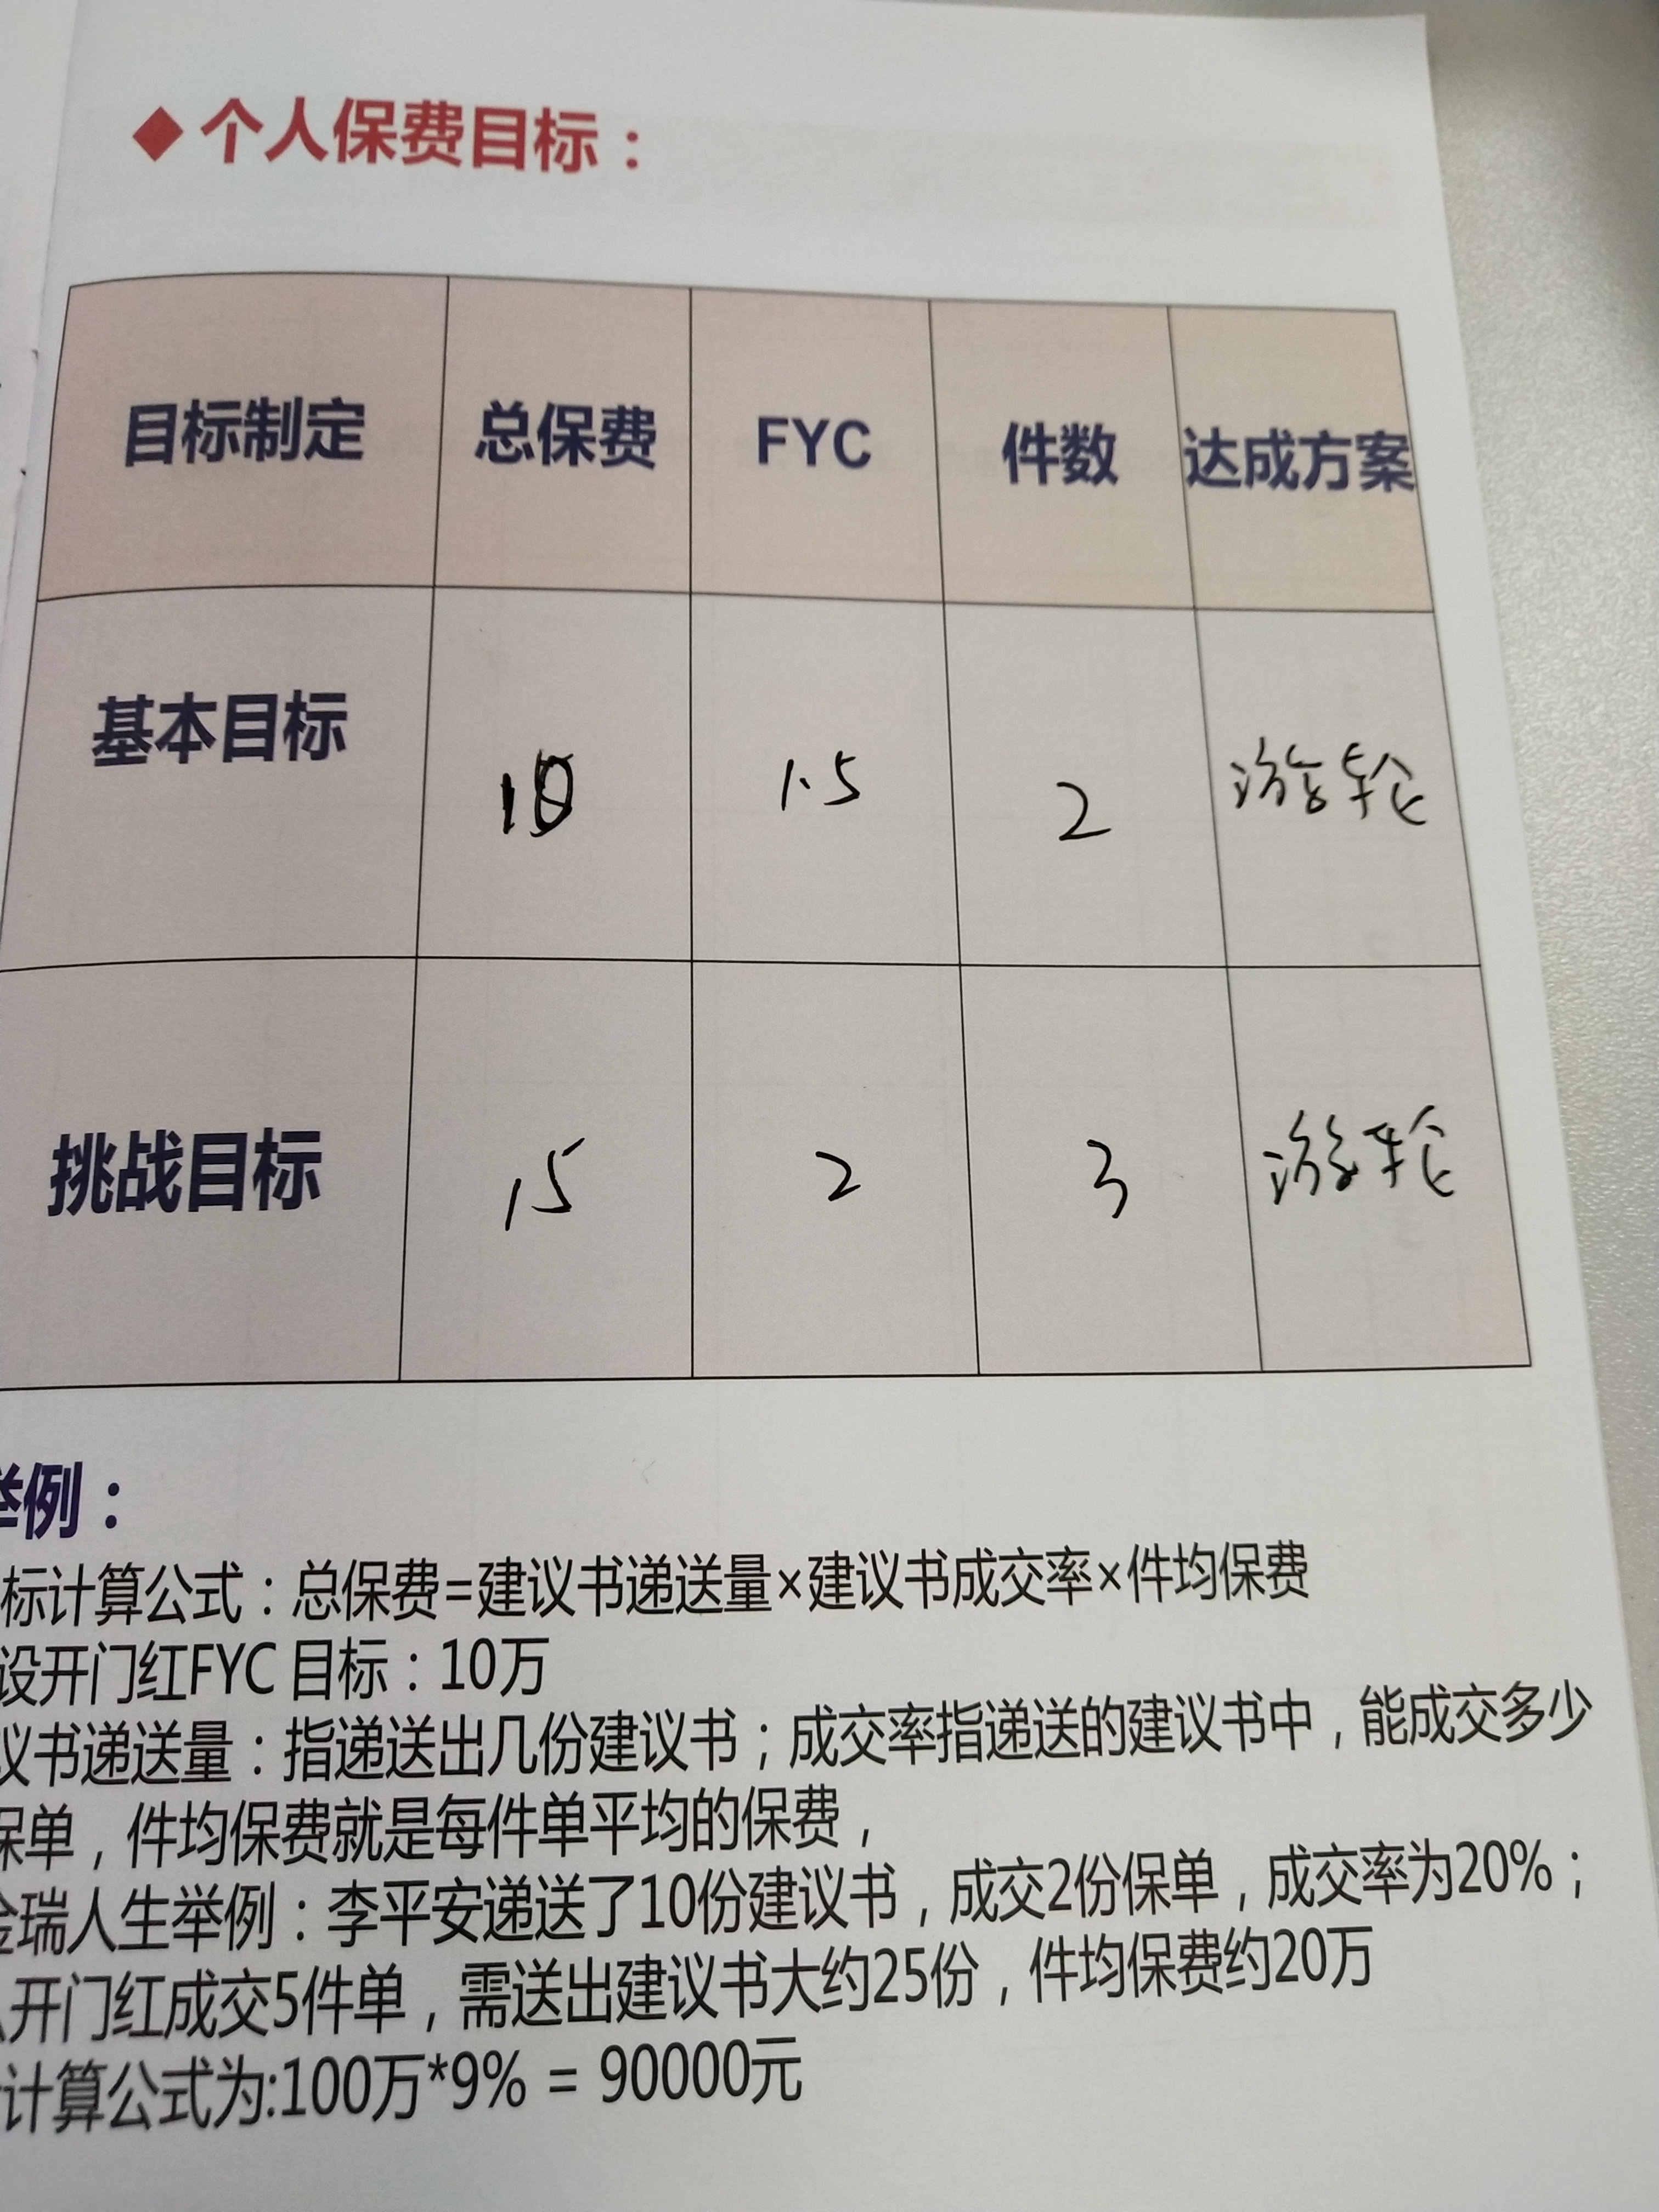 ◆个人保费目标：
目标制定 总保费 FYC 件数 达成方案
基本目标 10 1.5 2 游轮
挑战目标 15 2 3 游轮
举例：
标计算公式：总保费=建议书递送量×建议书成交率×件均保费
设开门红FYC 目标：10万
议书递送量：指递送出几份建议书；成交率指递送的建议书中，能成交多少
保单，件均保费就是每件单平均的保费，
金瑞人生举例：李平安递送了10份建议书，成交2份保单，成交率为20%；
开门红成交5件单，需送出建议书大约25份，件均保费约20万
计算公式为:100万*9% = 90000元